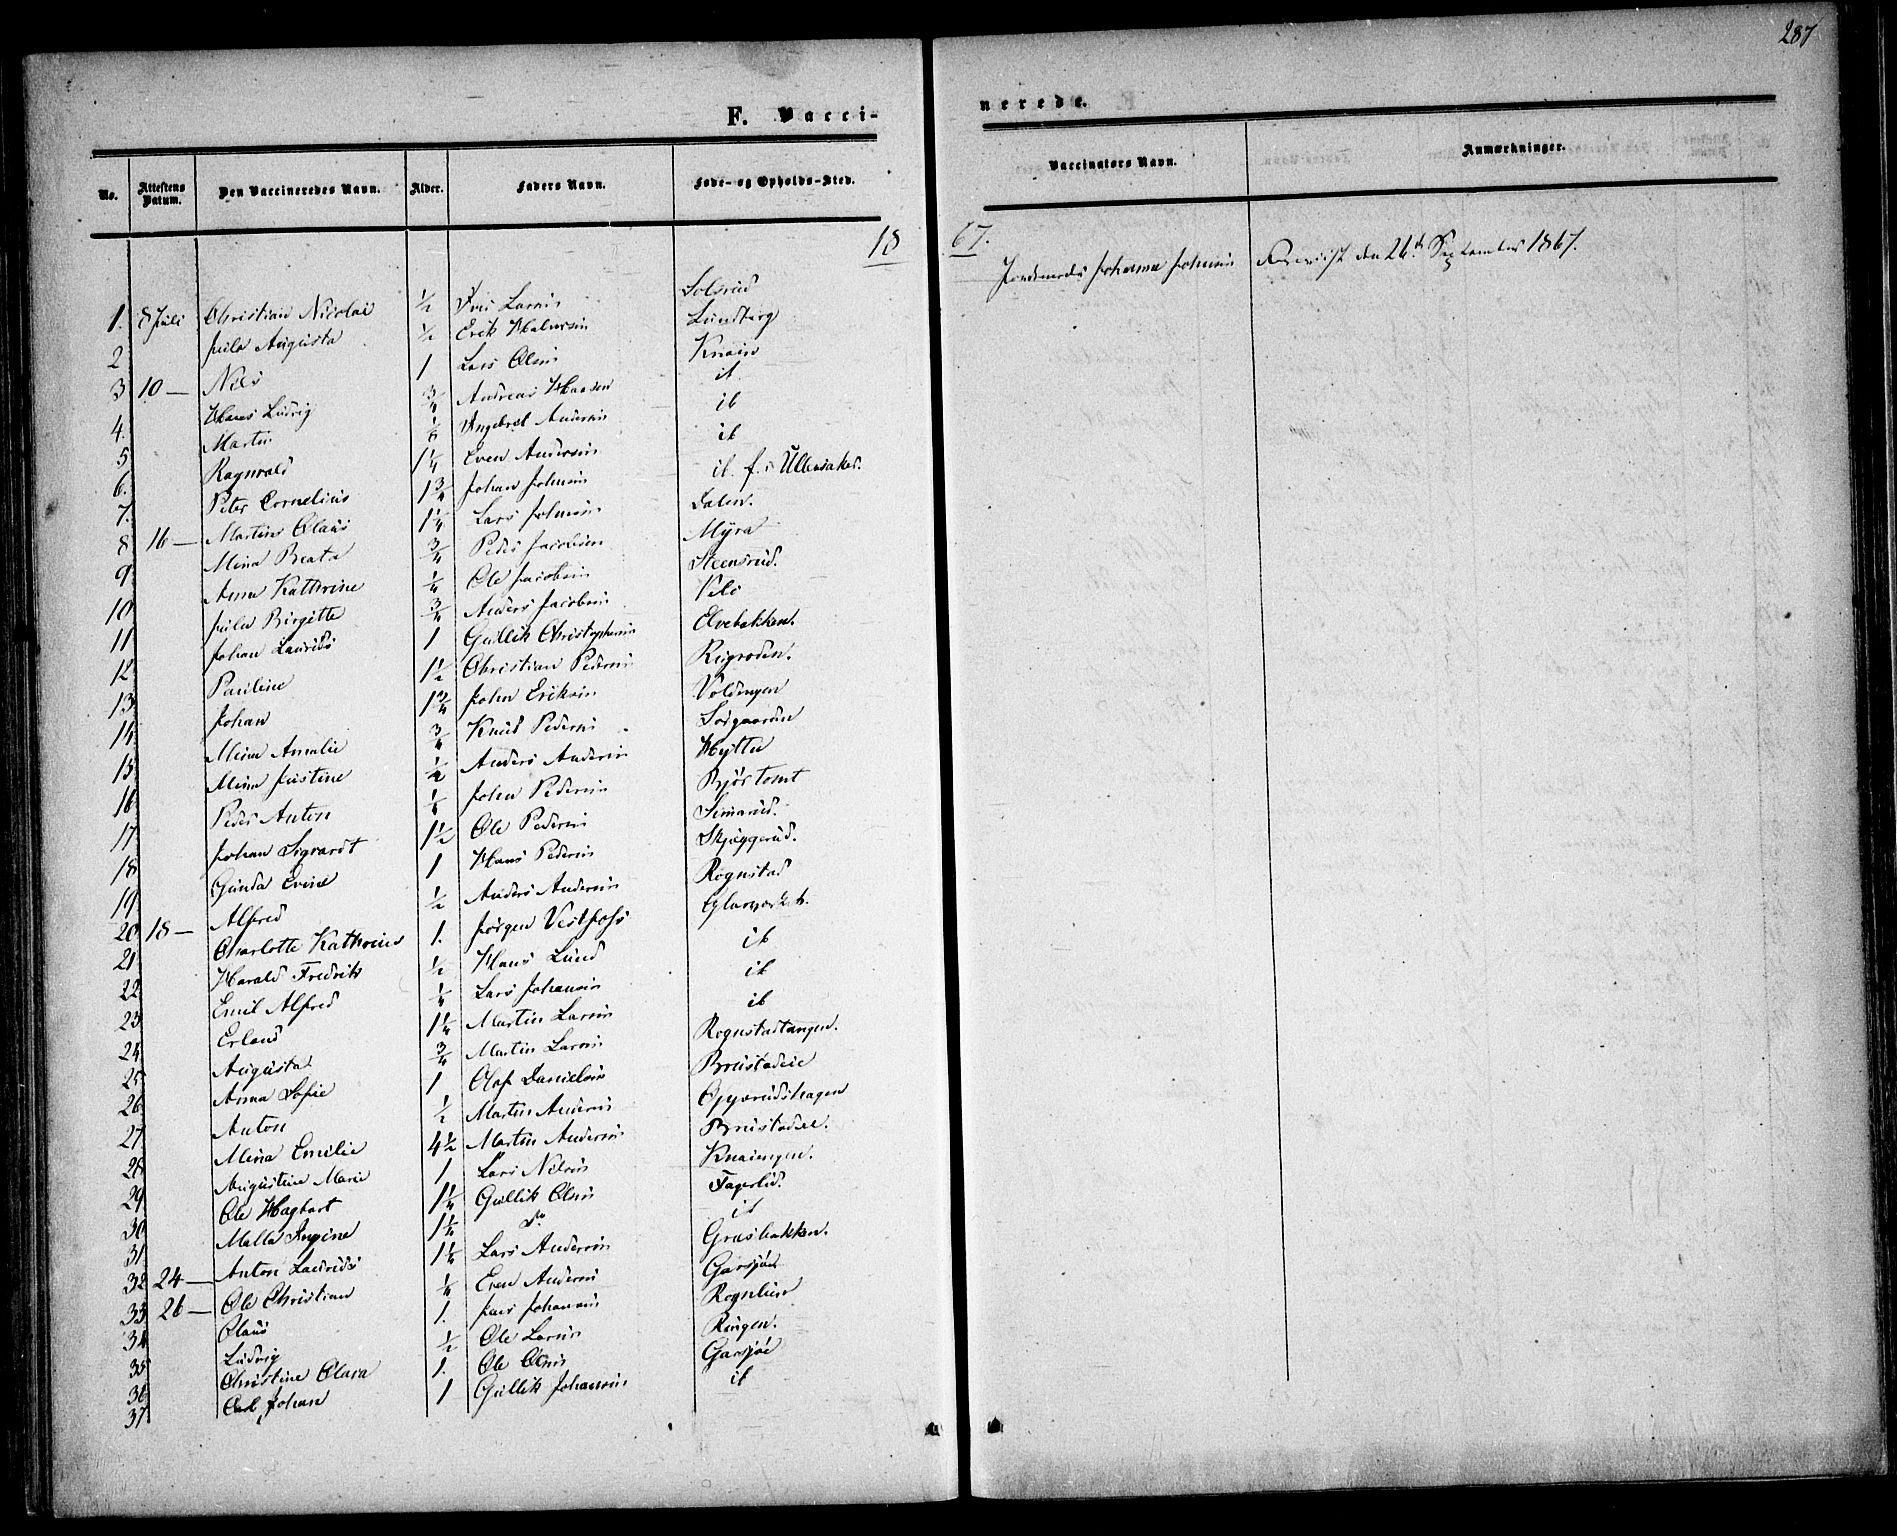 287
F. Vacci-
nerede.
No. Attestens Datum. Den Vaccineredes Navn. Alder. Faders Navn. Føde- og Opholds-Sted. Vaccinators Navn. Anmærkninger.
1867.
Jordmoder Johanne Johnsen Beviist den 26de September 1867.
1. 8 Juli Christian Nicolai 1/2 Larsen Solsrud
2 Julo Augusta 1/2 Erik Halvorsen Lundberg
3 10 — Nils 1 Lars Olsen Knain
4. Hans Ludvig 3/4 Andreas Hansen ib
5 Martin Engebret Andersen ib
6. Ragnvald 1 1/4 Even Andersen ib
7. Peter Cornelius 1 3/4 Johan Johnsen ib. f. i Ullensaker.
8 16 — Martin Olaus 1 1/4 Lars Johnsen Dalen.
9 Mina Beata 3/4 Peder Jacobsen Myra
10 Anna Kathrine 1/4 Ole Jacobsen Steensrud.
11 Birgitte 3/4 Anders Jacobsen
12 Johan Laurids 1 Gullik Christophersen Elvebakken.
13 Pauline 1 1/2 Christian Pedersen
14 Johan 1 3/4 John Eriksen Voldengen
15 Mina Amalie 3/4 Knud Pedersen Sorgaarden
16 Mina Justine 1/2 Anders Andersen Hytta
17 Peder Anton John Pedersen Bjørtomt
18 Johan Sigvardt 1 1/2 Ole Pedersen Simarud.
19 Gunda Evine 1 Hans Pedersen Skjæggerud.
20 18 — Alfred 1/2 Anders Andersen Rognstad
21 Charlotte Kathrine 1. Jørgen Vestfos Glasværket.
22 Harald Fredrik 1/2 Hans Lund ib
23 Emil Alfred 1/4 Lars Johansen ib
24 Erland 1 1/4 Martin Larsen ib
25 Augusta 3/4 Martin Larsen Rognstadtangen.
26 Anna Sofie 1 Olaf Danielsen Brustadeie
27 Anton 1/2 Martin Andersen Opperudshagen
28 Mina Emilie 4 1/2 Martin Andersen Brustadeie.
29 Augustine Marie 1 Lars Nilsen Knaiengen.
30 Ole Hagbart 1 1/4 Gullik Olsen Fagerlid.
31 Malla Regine 1 1/4 Do ib
32 24 — Anton Laurids 1 1/4 Lars Andersen Græsbakken.
33 26 — Ole Christian 1/4 Even Andersen Garsjøe
34 Olaus 1. Johansen Rognlien
35 Ludvig 1/2 Ole Larsen Ringen.
36 Christine Clara 1. Ole Olsen Garsjøe
37 Carl Johan 1 Gullik Johansen ib